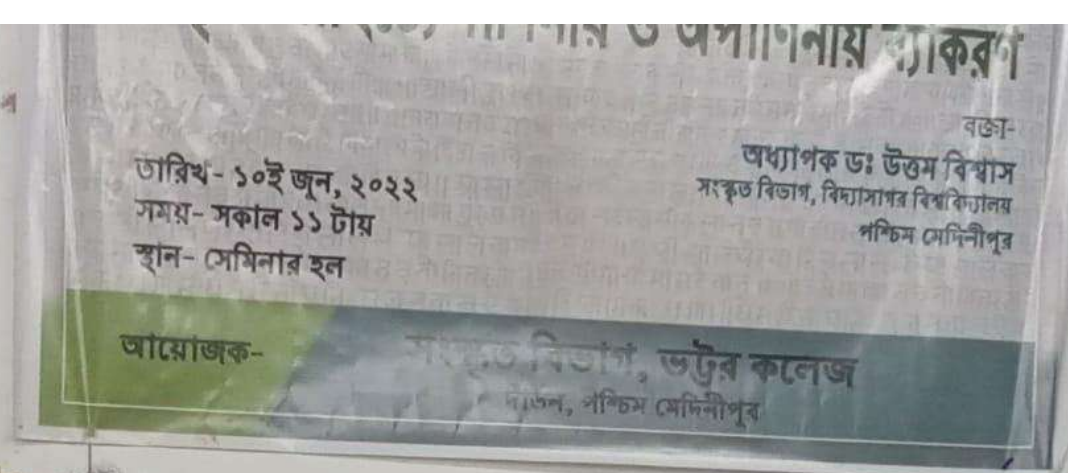 ও অপাণিনীয় ব্যাকরণ
বক্তা-
অধ্যাপক ডঃ উত্তম বিশ্বাস
সংস্কৃত বিভাগ, বিদ্যাসাগর বিশ্ববিদ্যালয়
পশ্চিম মেদিনীপুর
তারিখ- ১০ই জুন, ২০২২
সময়- সকাল ১১ টায়
স্থান- সেমিনার হল
আয়োজক-
সংস্কৃত বিভাগ, ভট্টর কলেজ
দাঁতন, পশ্চিম মেদিনীপুর